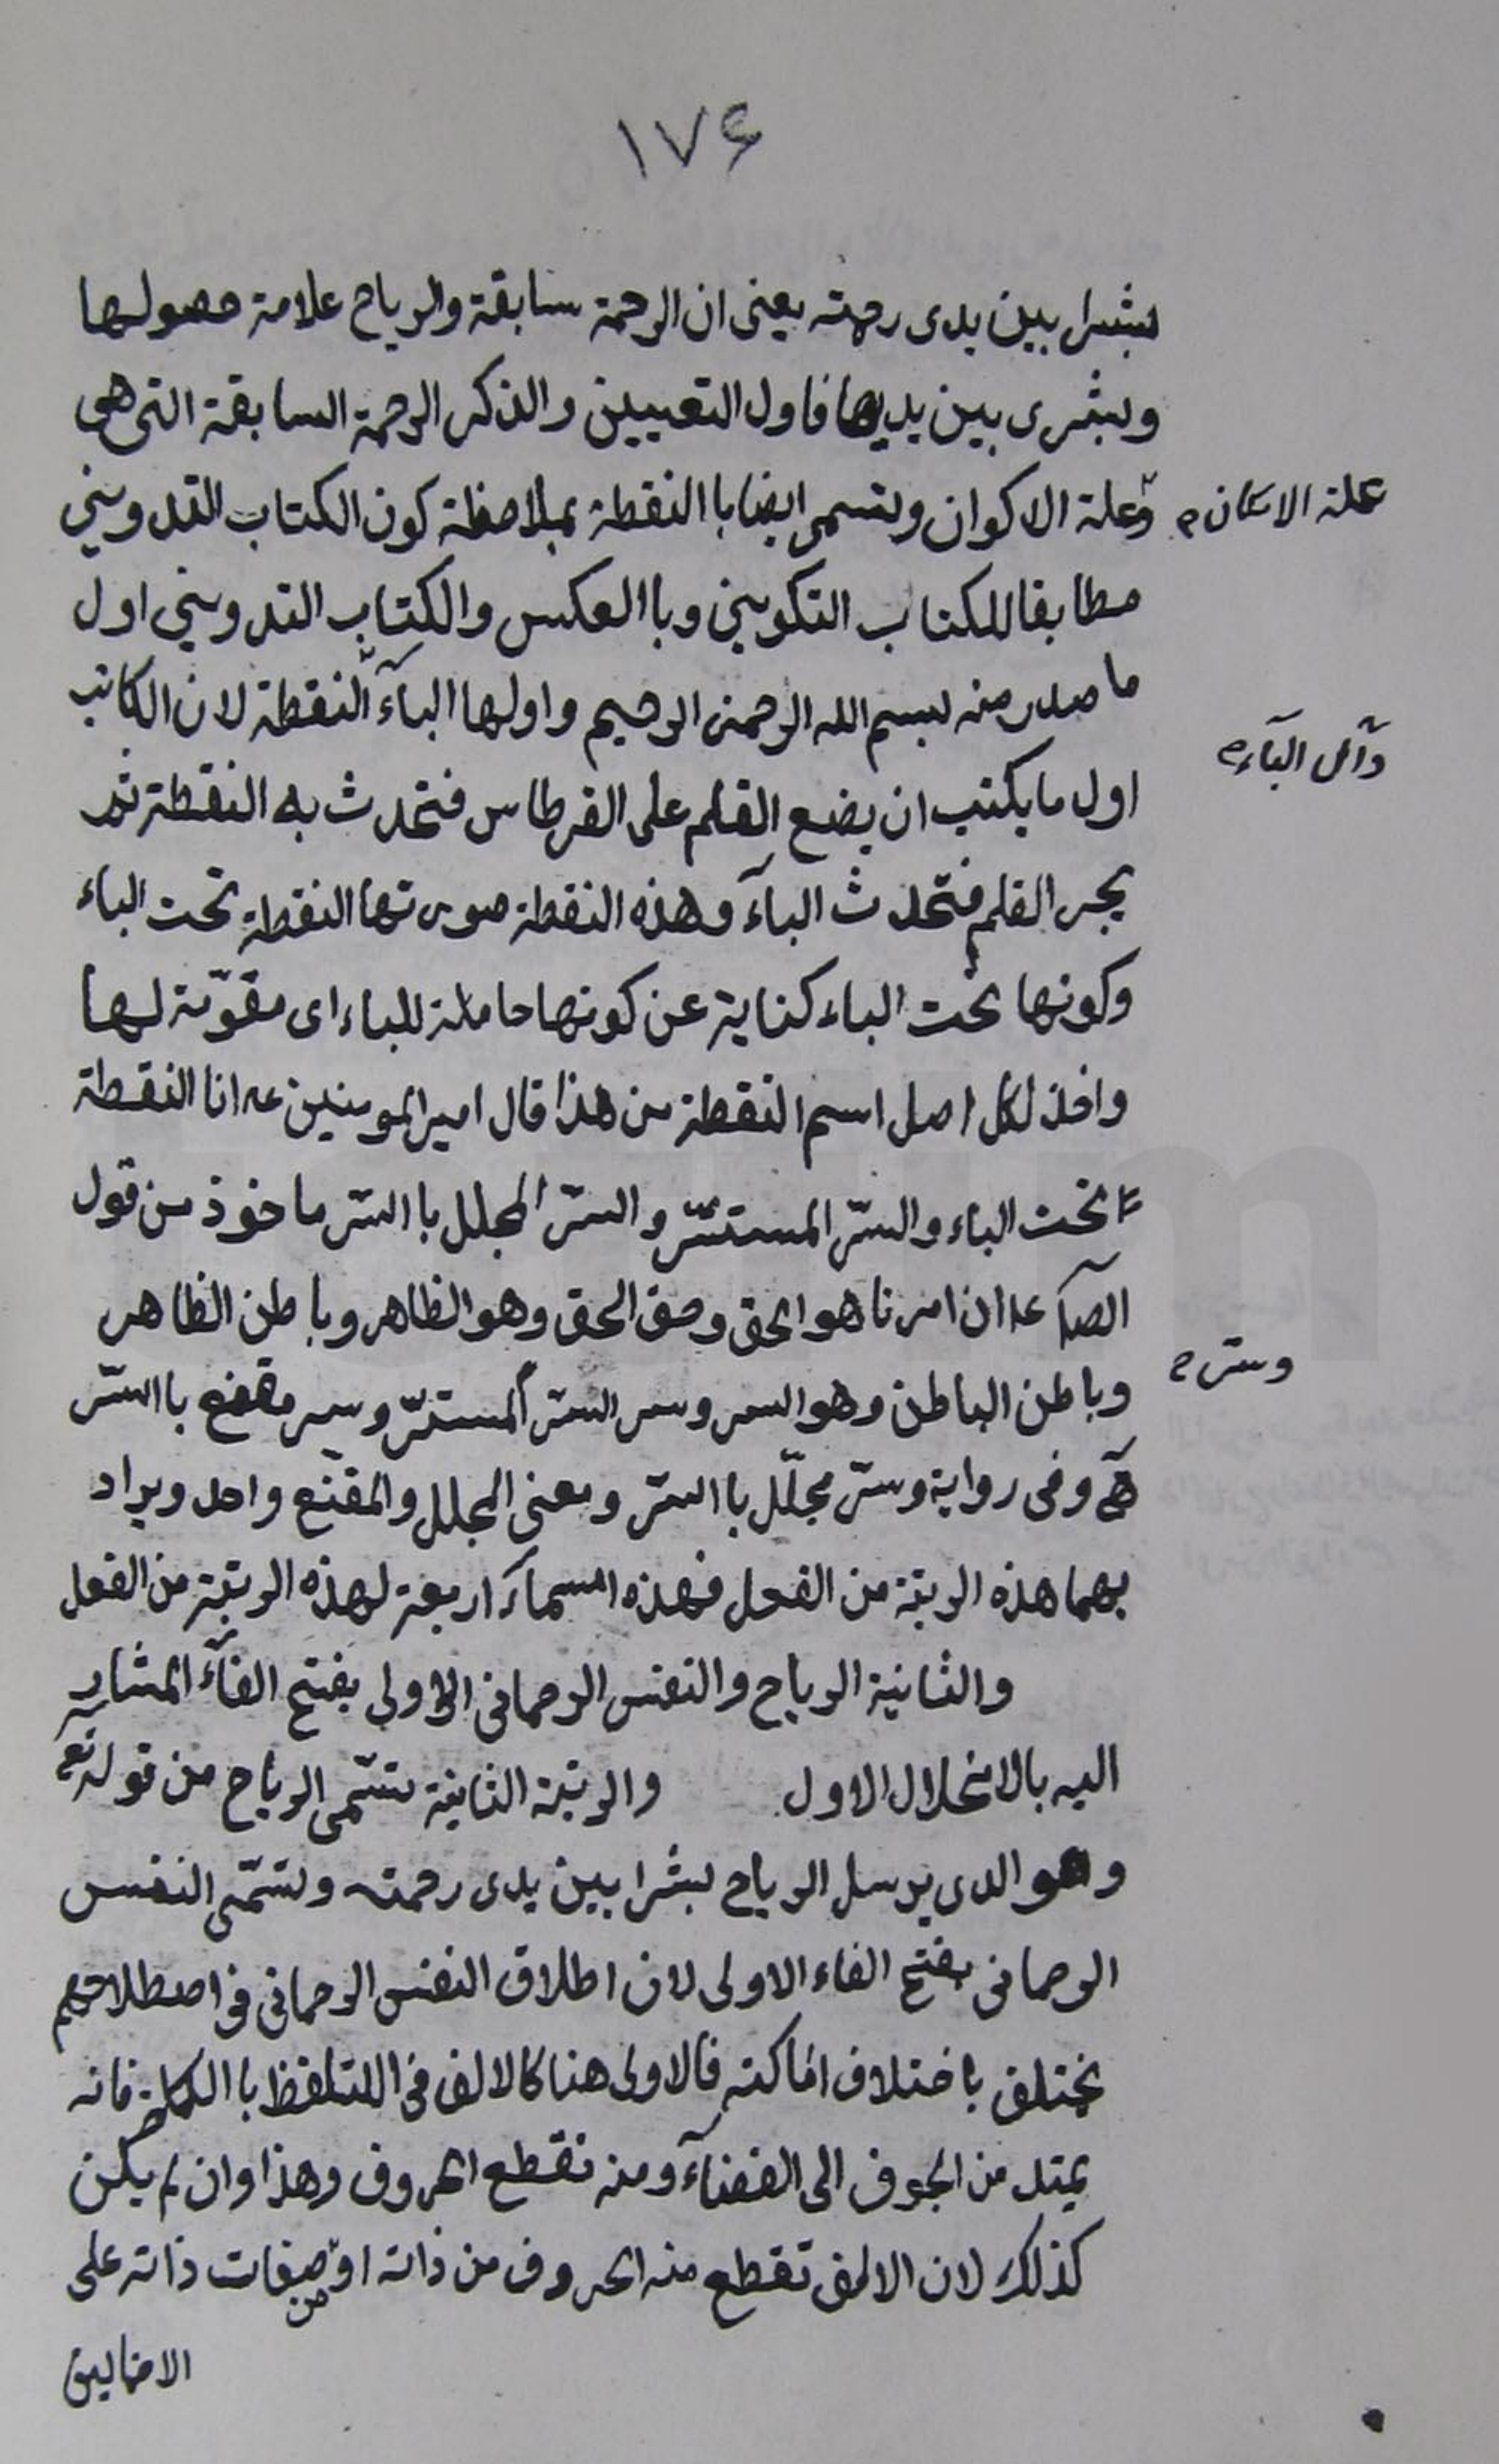 ١٧۶
بشرا بين يدى رحمته يعنى ان الرحمة سابقة والرياح علامة حصولها
وبشرى بين يديها فاول التعيين والذكر الرحمة السابقة التى هى
علة الامكان
وعلة الاكوان وتسمى ايضا باالنقطة بملاحظة كون الكتاب التدوينى
مطابقا للكتاب التكوينى وباالعكس والكتاب التدوينى اول
ما صدر منه بسم الله الرحمن الرحيم واولها الباۤء النقطة لان الكاتب
وآس الباۤء
اول ما يكتب ان يضع القلم على القرطاس فتحدث به النقطة ثم
يجر القلم فتحدث الباۤء وهذه النقطة صورتها النقطة تحت الباء
وكونها تحت الباء كناية عن كونها حاملة للباء اى مقوّمة لها
واخذ لكل اصل اسم النقطة من هذا قال امير المومنين عه انا النقطة
تحت الباء والسّر المستسّر والسّر المجلل باالسّر ماخوذ من قول
الصۤا عه ان امرنا هو الحق وحق الحق وهو الظاهر وباطن الظاهر
وباطن الباطن وهو السر وسر السّر المستسّر وسر مقنع باالسّر
وسّر
وفى رواية وسّر مجلّل باالسّر ومعنى المجلل والمقنع واحد ويراد
بهما هذه الرتبة من الفعل فهذه اسماۤء اربعة لهذه الرتبة من الفعل
والثانية الرياح والنفس الرحمانى الاولى بفتح الفاۤء المشار
اليه بالانحلال الاول والرتبة الثانية تسّمى الرياح من قوله تع
وهو الدى يرسل الرياح بشرا بين يدى رحمته وتسّمى النفس
الرحمانى بفتح الفاء الاولى لان اطلاق النفس الرحمانى فى اصطلاحهم
يختلف باختلاف اماكنه فالاولى هنا كالالف فى اللتلفظ باالكلمة فانه
يمتد من الجوف الى الفضاۤء ومنه تقطع الحروف وهذا وان لم يكن
كذلك لان الالف تقطع منه الحروف من ذاته او من صفات ذاته على
الاحتمالين